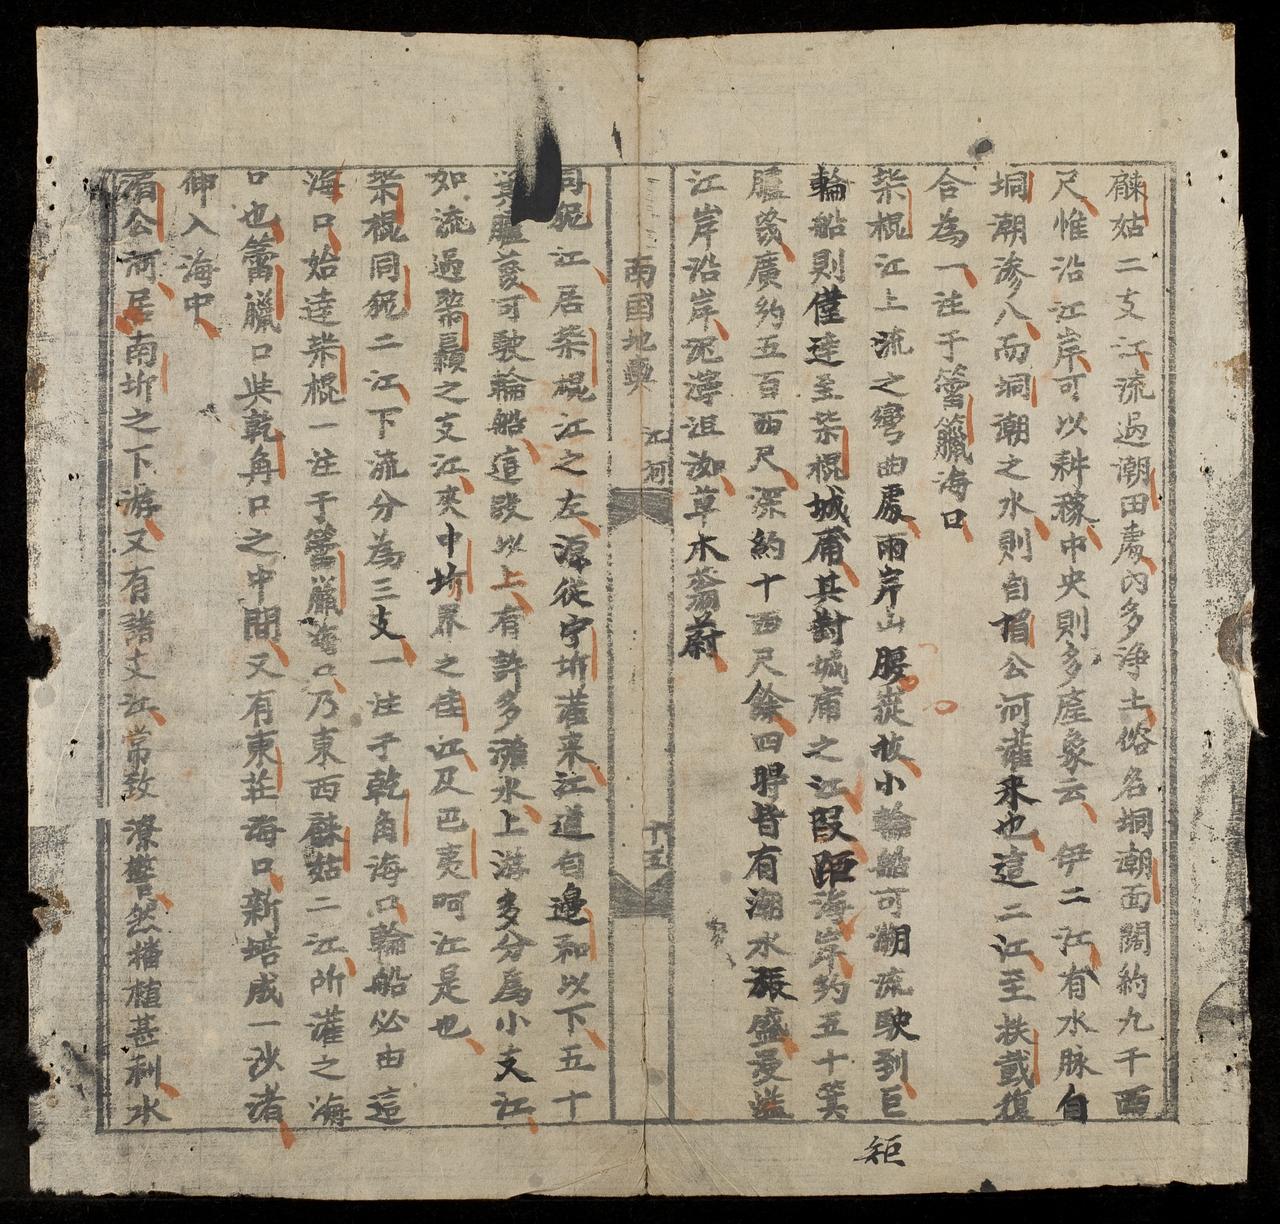 龢姑二支江流過潮田處內多浄土俗名垌潮面闊約九千西
尺惟沿江岸可以耕稼中央則多產象云伊二江有水脉自
垌潮渗入而垌潮之水則自湄公河灌来也這二江至秩戴復
合為一注于䈏臘海口
柴棍江上流之彎曲處兩岸山腰嶔故小輪船可溯流駛到巨
輪船則僅達至柴棍城庯其對城庯之江段距海岸約五十箕
臚袤廣約五百西尺深約十西尺餘四時皆有潮水振盛漫溢
江岸沿岸泥濘沮洳草木蓊蔚
南國地輿 江河 十五
同貎江居柴棍江之左源從宁圻灌来江道自邊和以下五十
箕臚袤可駛輪船這段以上有許多灘水上游多分為小支江
如流過檠顙之支江夾中圻界之佳江及巴夷呵江是也
柴棍同貎二江下流分為三支一注于乾角海口輪船必由這
海口始達柴棍一注于䈏臘海口乃東西龢姑二江所灌之海
口也䈏臘口與乾角口之中間又有東莊海口新培成一沙渚
仰入海中
湄公河居南圻之下游又有諸支江常致潦鬱然播植甚利水
矩